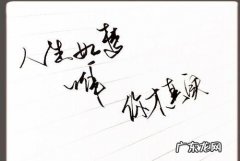 人生如梦
唯
你才真现
广东龙网